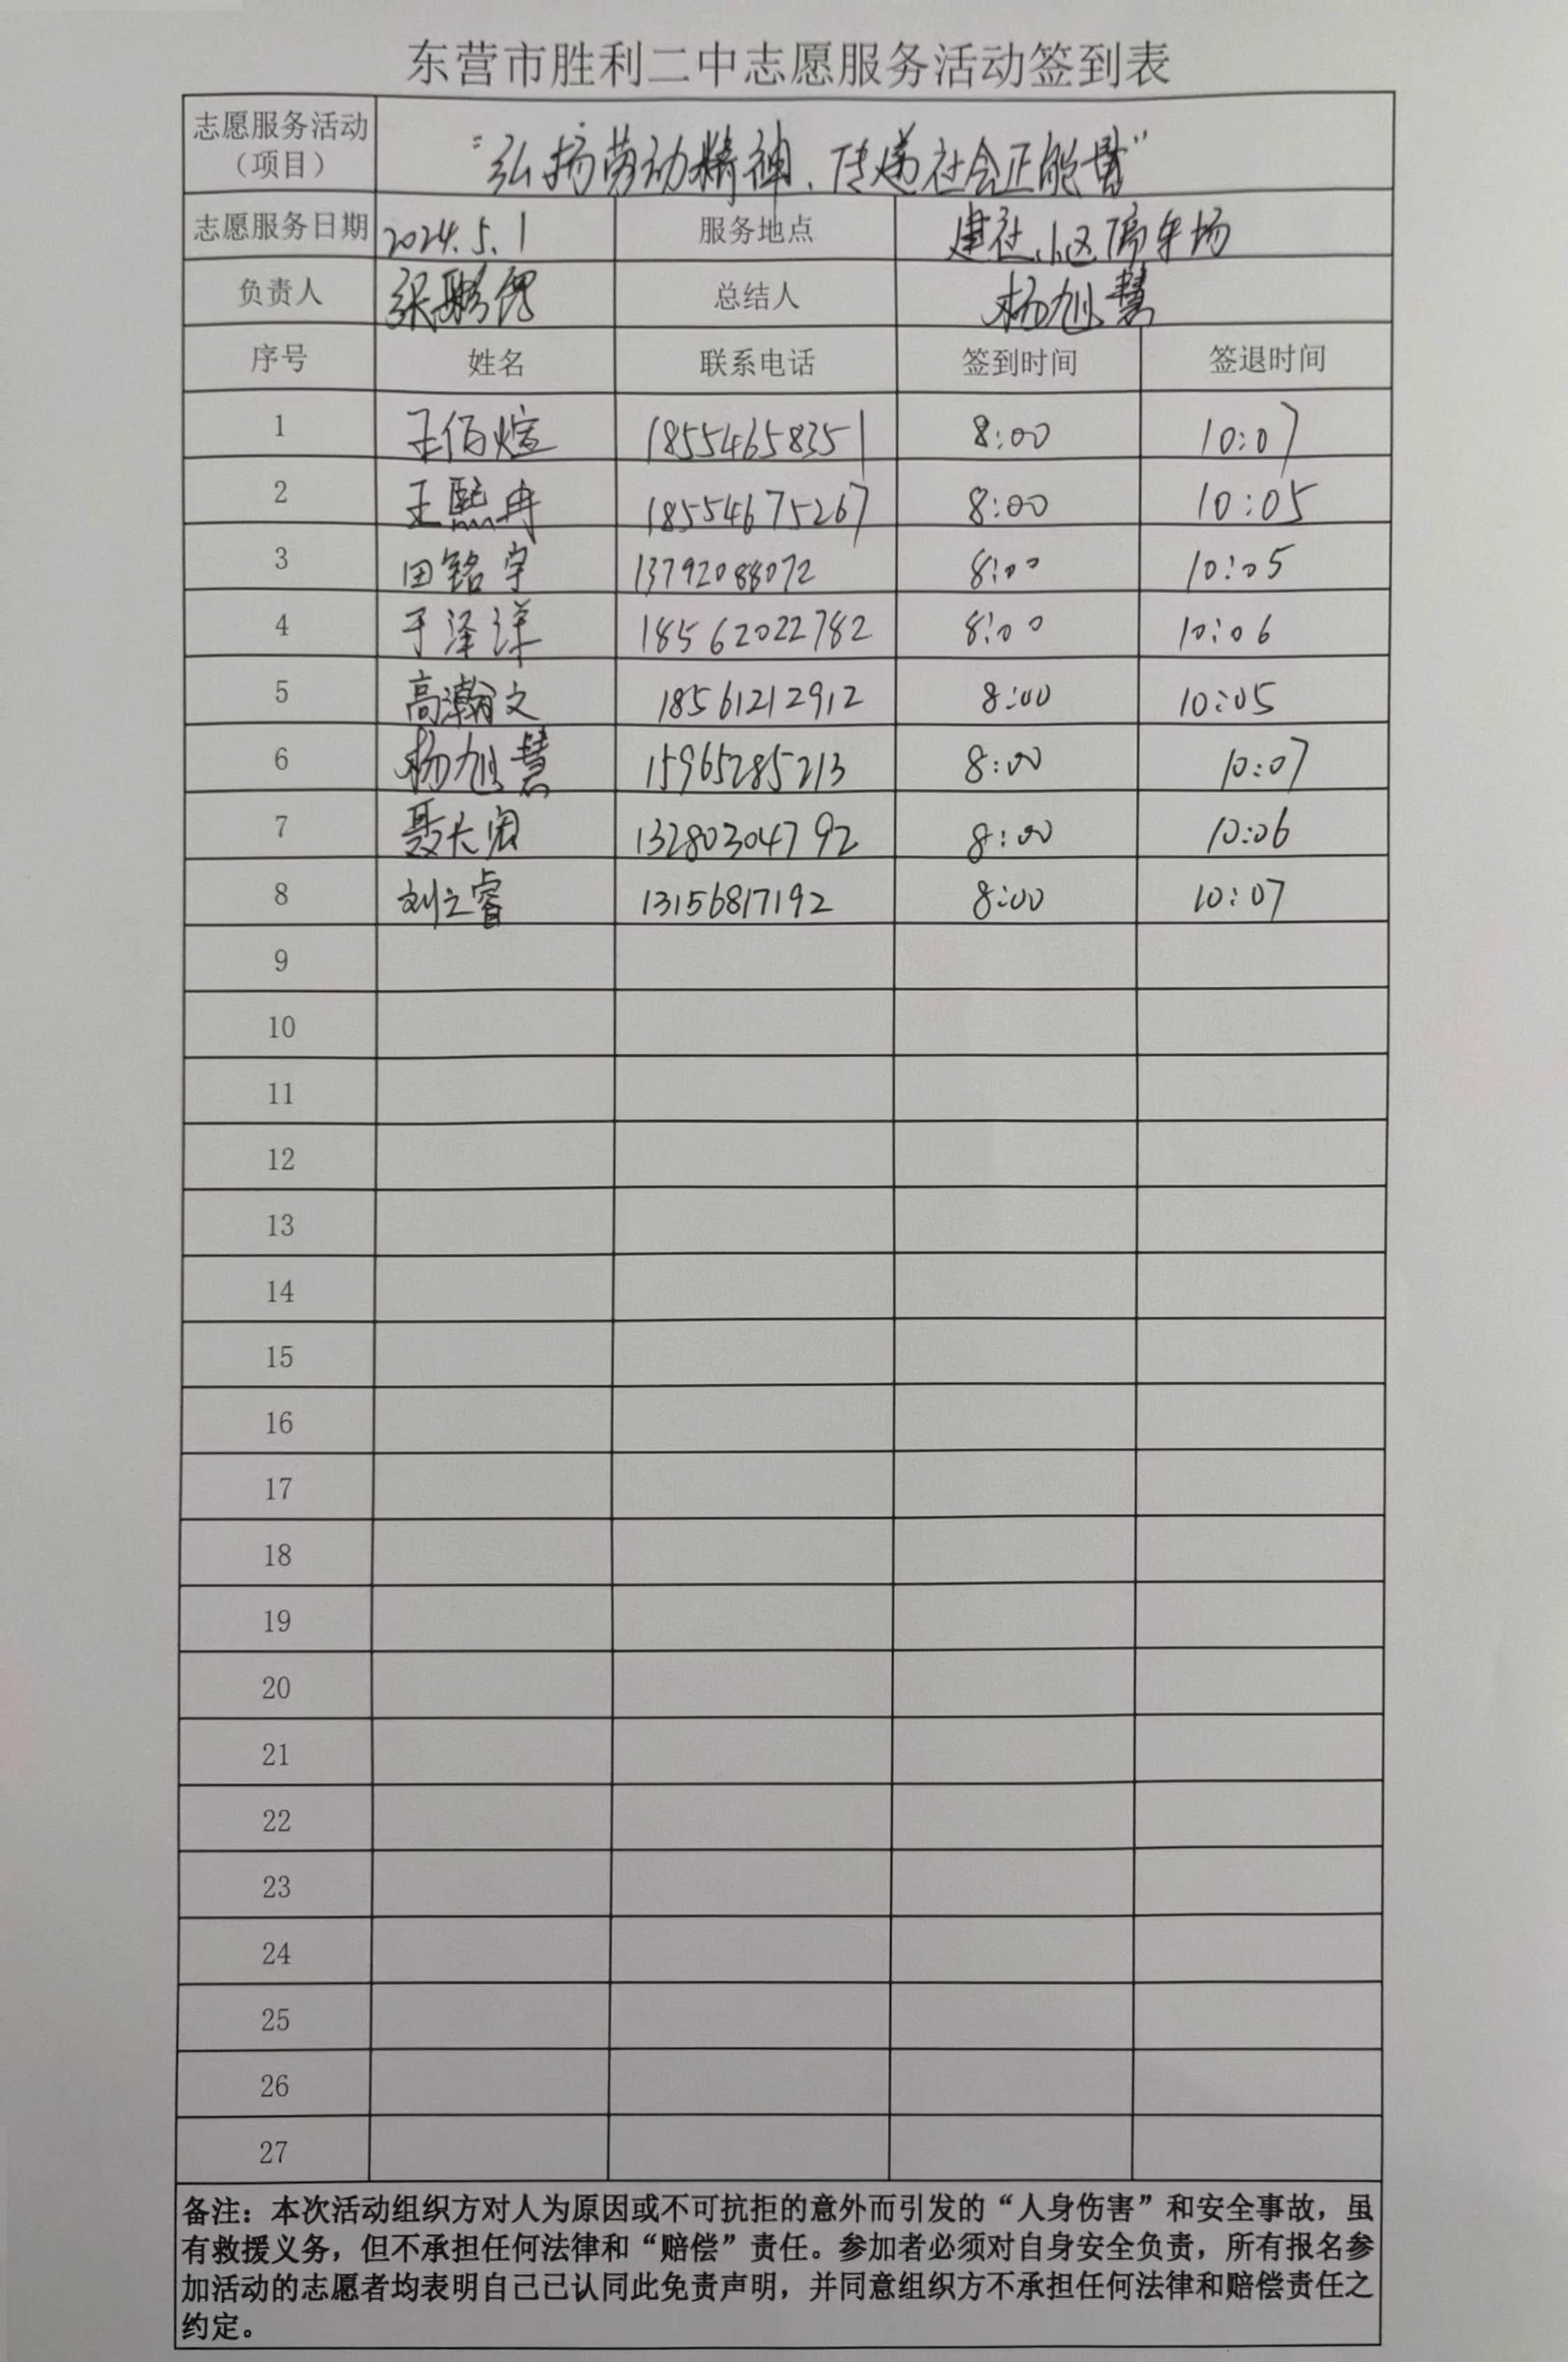 东营市胜利二中志愿服务活动签到表
志愿服务活动（项目） “弘扬劳动精神、传递社会正能量”
志愿服务日期 2024.5.1 服务地点 建社小区停车场
负责人 总结人 杨旭慧
序号 姓名 联系电话 签到时间 签退时间
1 王佰煊 18554658351 8:00 10:07
2 王熙冉 18554675267 8:00 10:05
3 田铭宇 13792088072 8:00 10:05
4 于泽洋 18562022782 8:00 10:06
5 高瀚文 18561212912 8:00 10:05
6 杨旭慧 15965285213 8:00 10:07
7 聂长闳 13280304792 8:00 10:06
8 刘之睿 13156817192 8:00 10:07
9
10
11
12
13
14
15
16
17
18
19
20
21
22
23
24
25
26
27
备注：本次活动组织方对人为原因或不可抗拒的意外而引发的“人身伤害”和安全事故，虽
有救援义务，但不承担任何法律和“赔偿”责任。参加者必须对自身安全负责，所有报名参
加活动的志愿者均表明自己已认同此免责声明，并同意组织方不承担任何法律和赔偿责任之
约定。